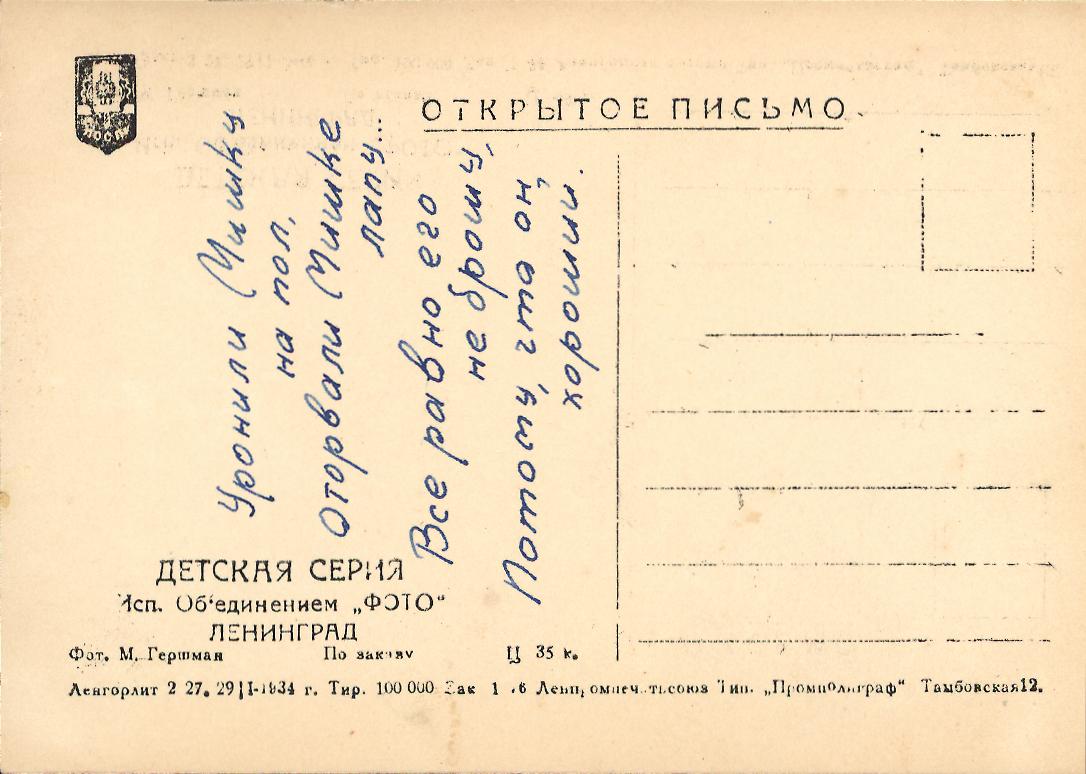 ОТКРЫТОЕ ПИСЬМО
Уронили Мишку
на пол,
Оторвали Мишке
лапу...
Все равно его
не брошу,
Потому, что он
хороший.
ДЕТСКАЯ СЕРИЯ
Исп. Об'единением „ФОТО"
ЛЕНИНГРАД
Фот. М. Гершман По заказу Ц 35 к.
Ленгорлит 2 27. 29|I-1934 г. Тир. 100 000 Зак Тип. „Промполиграф" Тамбовская 12.